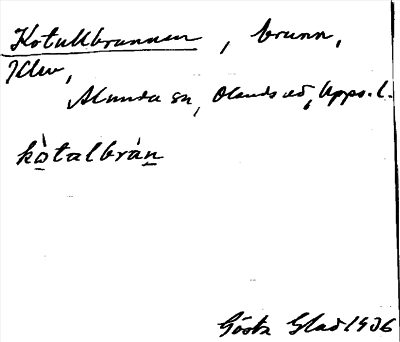 Kotallbrunnen, brunn,
Klev,
Alunda sn, Olands hd, Upps. l.
kòtalbràn
Gösta Glad 1936